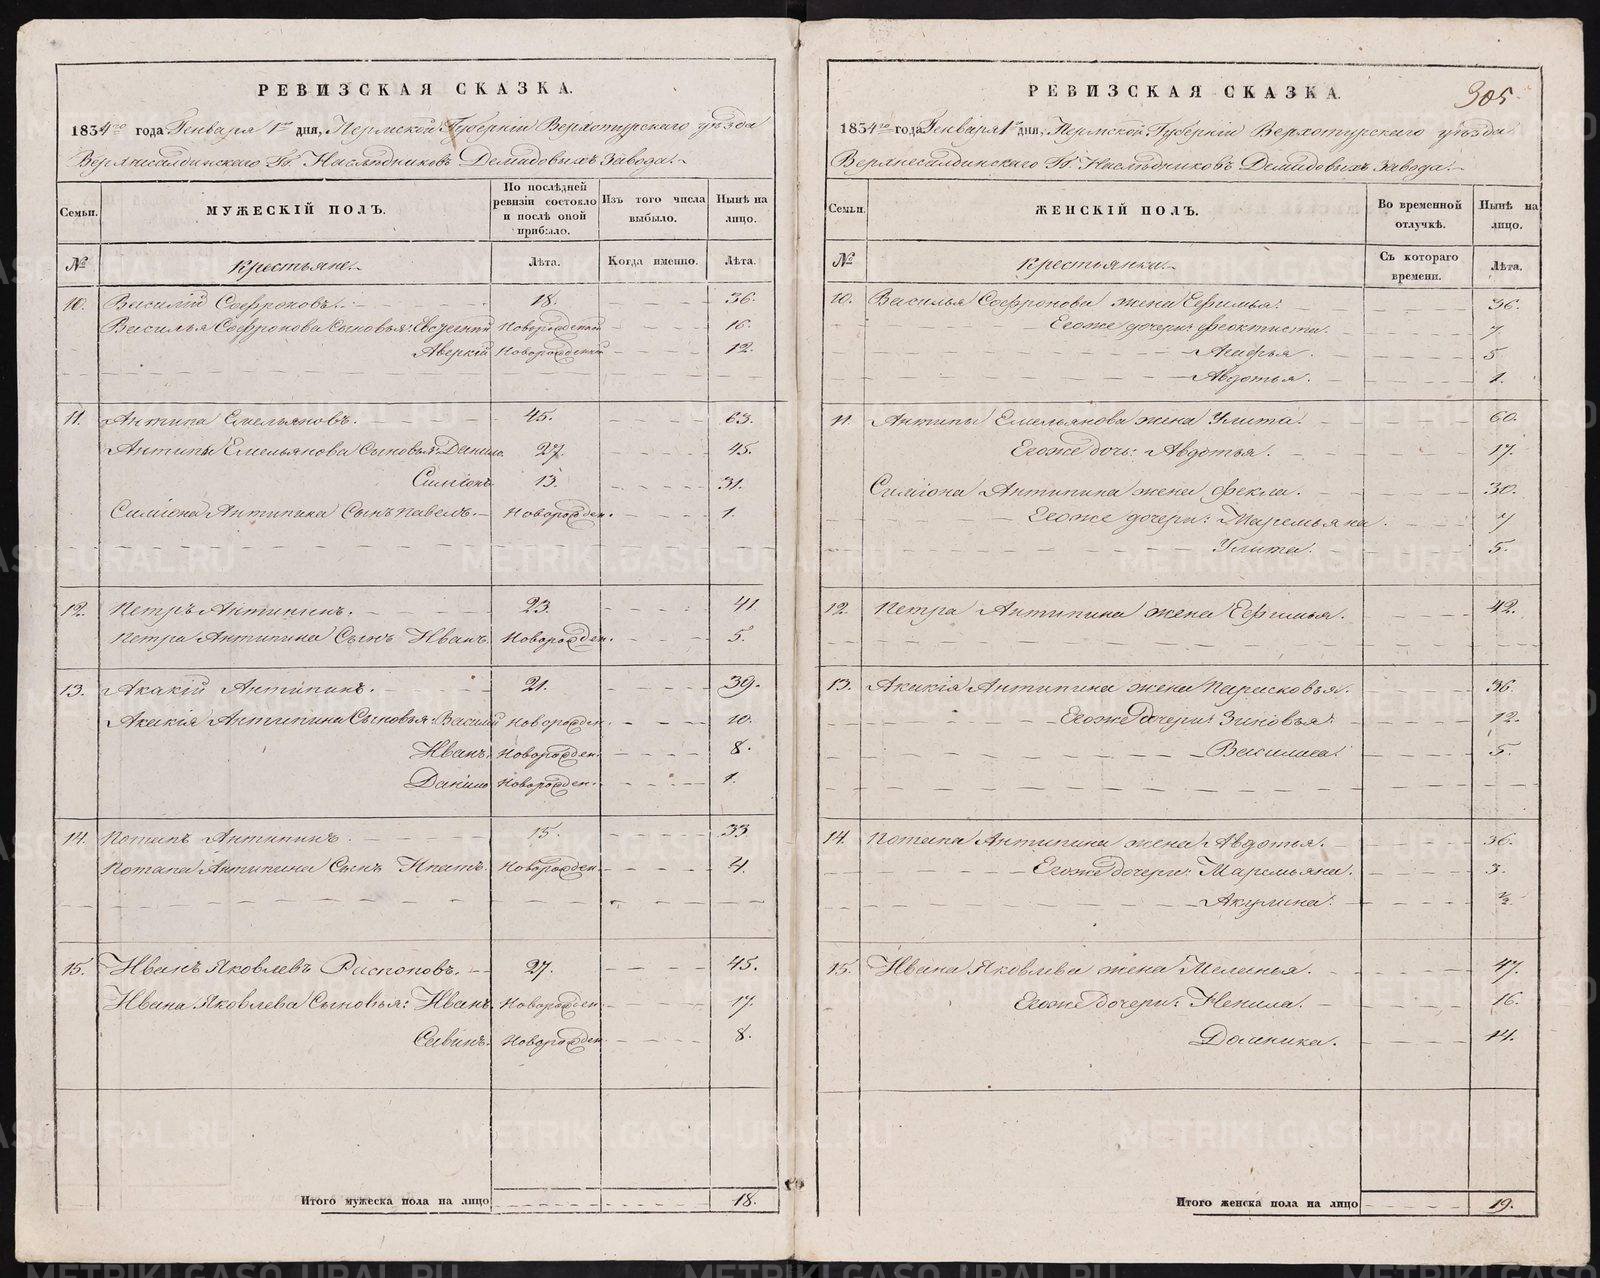 РЕВИЗСКАЯ СКАЗКА.
1834го года Генваря 1го дня, Пермской Губерніи Верхотурскаго уѣзда
Верхнесалдинскаго Гг. Наслѣдниковъ Демидовыхъ Завода.
Семьи.
МУЖЕСКІЙ ПОЛЪ.
По послѣдней ревизіи состояло и послѣ оной прибыло.
Изъ того числа выбыло.
Нынѣ на лицо.
№
Крестьяне.
Лѣта.
Когда именно.
Лѣта.
10. Василій Софроновъ. 18. 36.
Василья Софронова Сыновья: Евсегній Новорожденный 16.
Аверкій Новорожденный 12.
11. Антипа Емельяновъ. 45. 63.
Антипы Емельянова Сыновья: Данило. 27. 45.
Симіонъ. 13. 31.
Симіона Антипина Сынъ Павелъ. Новорожден. 1.
12. Петръ Антипинъ. 23. 41.
Петра Антипина Сынъ Иванъ. Новорожден. 5.
13. Акакій Антипинъ. 21. 39.
Акакія Антипина Сыновья: Василій Новорожден. 10.
Иванъ. Новорожден. 8.
Данило Новорожден. 1.
14. Потапъ Антипинъ. 15. 33
Потапа Антипина Сынъ Ипатъ. Новорожден. 4.
15. Иванъ Яковлевъ Распоповъ. 27. 45.
Ивана Яковлева Сыновья: Иванъ. Новорожден. 17.
Савинъ. Новорожден. 8.
Итого мужеска пола на лицо 18.
305
РЕВИЗСКАЯ СКАЗКА.
1834го года Генваря 1го дня, Пермской Губерніи Верхотурскаго уѣзда
Верхнесалдинскаго Гг. Наслѣдниковъ Демидовыхъ Завода.
Семьи.
ЖЕНСКІЙ ПОЛЪ.
Во временной отлучкѣ.
Нынѣ на лицо.
№
Крестьянки.
Съ котораго времени.
Лѣта.
10. Василья Софронова жена Ефимья. 36.
Егоже дочери: Феоктиста. 7.
Агафья. 5
Авдотья. 1.
11. Антипы Емельянова жена Улита. 60.
Егоже дочь: Авдотья. 17.
Симіона Антипина жена Фекла. 30.
Егоже дочери: Маремьяна. 7
Улита. 5.
12. Петра Антипина жена Ефимья. 42.
13. Акакія Антипина жена Парасковья. 36.
Егоже дочери: Зиновья. 12.
Василиса. 5.
14. Потапа Антипина жена Авдотья. 36.
Егоже дочери: Маремьяна. 3.
Акулина. ½
15. Ивана Яковлева жена Меланья. 47.
Егоже дочери: Ненила. 16.
Домника. 14.
Итого женска пола на лицо 19.
METRIKI.GASO-URAL.RU